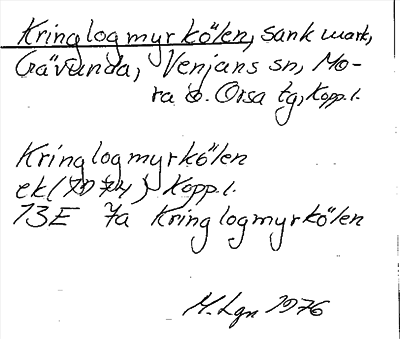 Kringlogmyrkölen, sank mark,
Gävunda, Venjans sn, Mo-
ra o. Orsa tg, Kopp.l.
Kringlogmyrkölen
ek Kopp.l.
13E 7a Kringlogmyrkölen
M. Lgn 1976